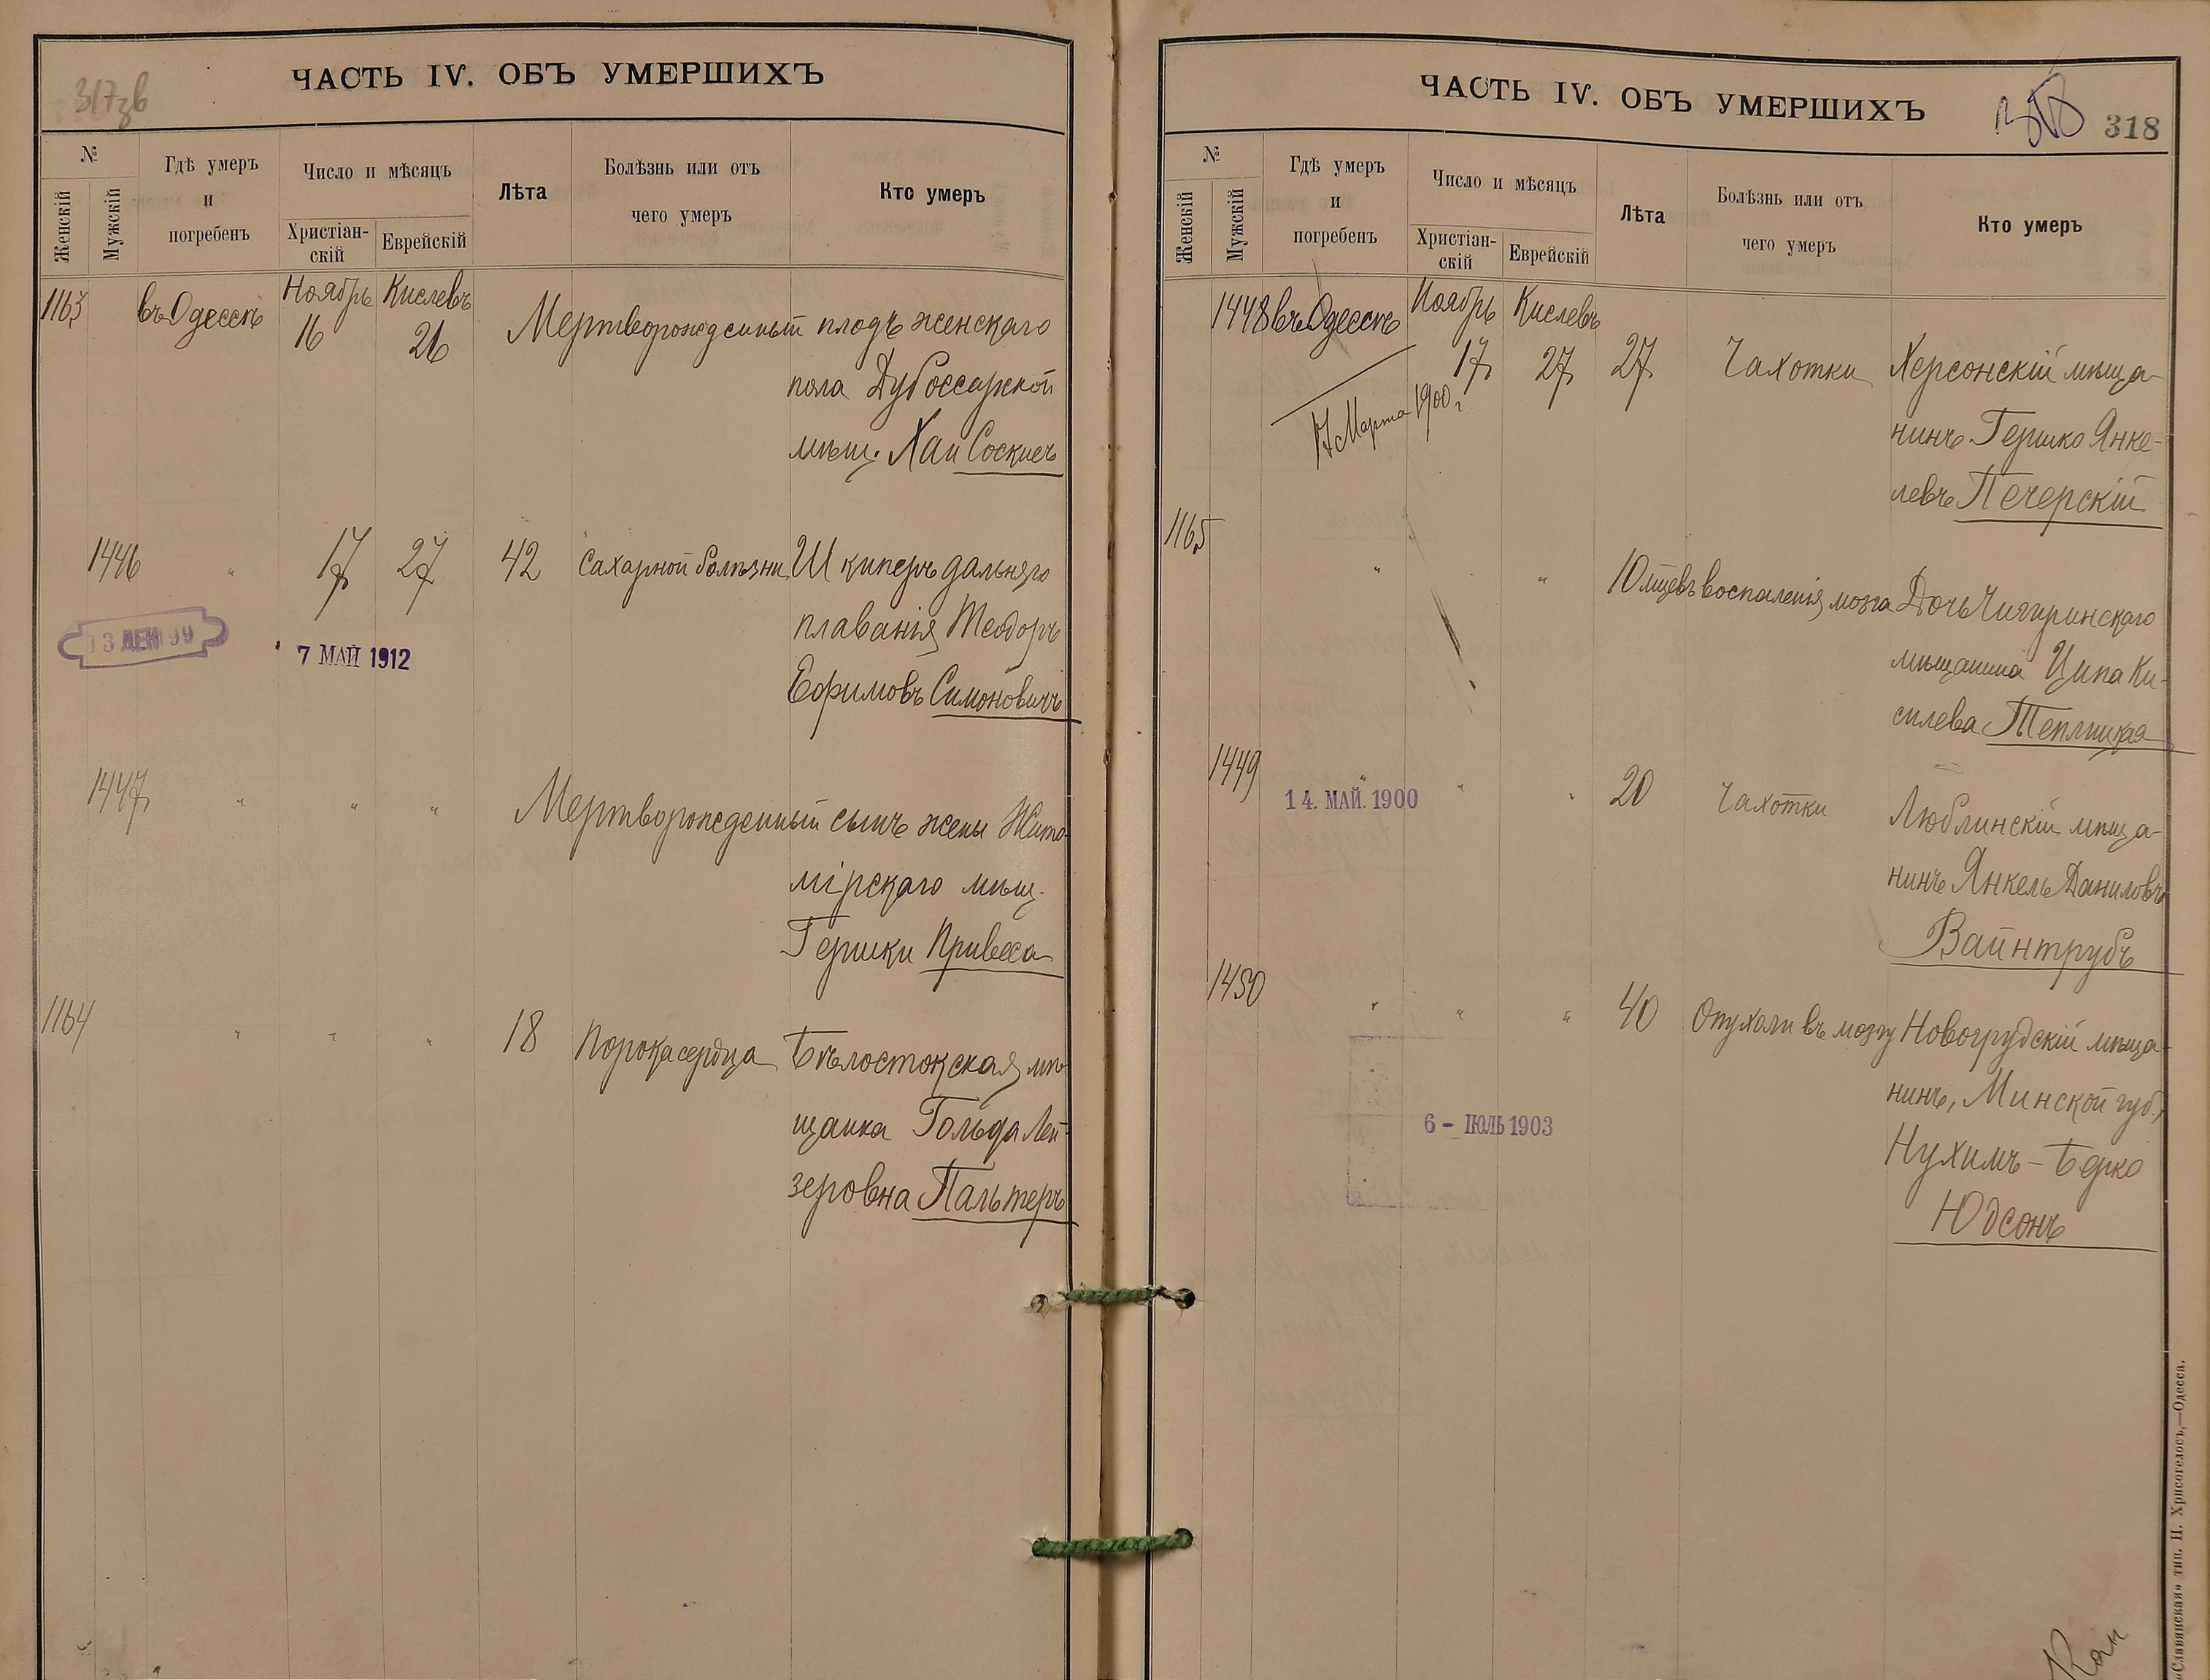 317 зв
ЧАСТЬ IV. ОБЪ УМЕРШИХЪ
№
Женскій
Мужскій
Гдѣ умеръ
и
погребенъ
Число и мѣсяцъ
Христіан-
скій
Еврейскій
Лѣта
Болѣзнь или отъ
чего умеръ
Кто умеръ
1163 въ Одессѣ Ноябрь Кислевъ
16 26 Мертворожденный плодъ женскаго
пола Дубоссарской
мѣщ. Хаи Соскисъ
1446 " 17 27 42 Сахарной болѣзни Шкиперъ дальняго
плаванія Теодоръ
Ефимовъ Симоновичъ
13 ДЕК 99
7 МАЙ 1912
1447 " " " Мертворожденный сынъ жены Жито-
мірскаго мѣщ.
Гершки Привеса
1164 " " " 18 Порока сердца Бѣлостокская мѣ-
щанка Гольда Лей-
зеровна Пальтеръ
ЧАСТЬ IV. ОБЪ УМЕРШИХЪ
318
318
№
Женскій
Мужскій
Гдѣ умеръ
и
погребенъ
Число и мѣсяцъ
Христіан-
скій
Еврейскій
Лѣта
Болѣзнь или отъ
чего умеръ
Кто умеръ
1448 въ Одессѣ Ноябрь Кислевъ
17 27 27 Чахотки Херсонскій мѣща-
нинъ Гершко Янке-
левъ Печерскій
17 Марта 1900 г.
1165 " " 10 мцевъ воспаленія мозга Дочь Чигиринскаго
мѣщанина Ципа Ки-
силева Теплицкая
1449 " " " 20 Чахотки Люблинскій мѣща-
нинъ Янкель Даниловъ
Вайнтрубъ
14. МАЙ. 1900
1450 " " " 40 Опухоли въ мозгу Новогрудскій мѣща-
нинъ, Минской губ.,
Нухимъ-Берко
Юдсонъ
6 - ІЮЛЬ 1903
«Славянская» тип. Н. Хрисогелосъ,—Одесса.